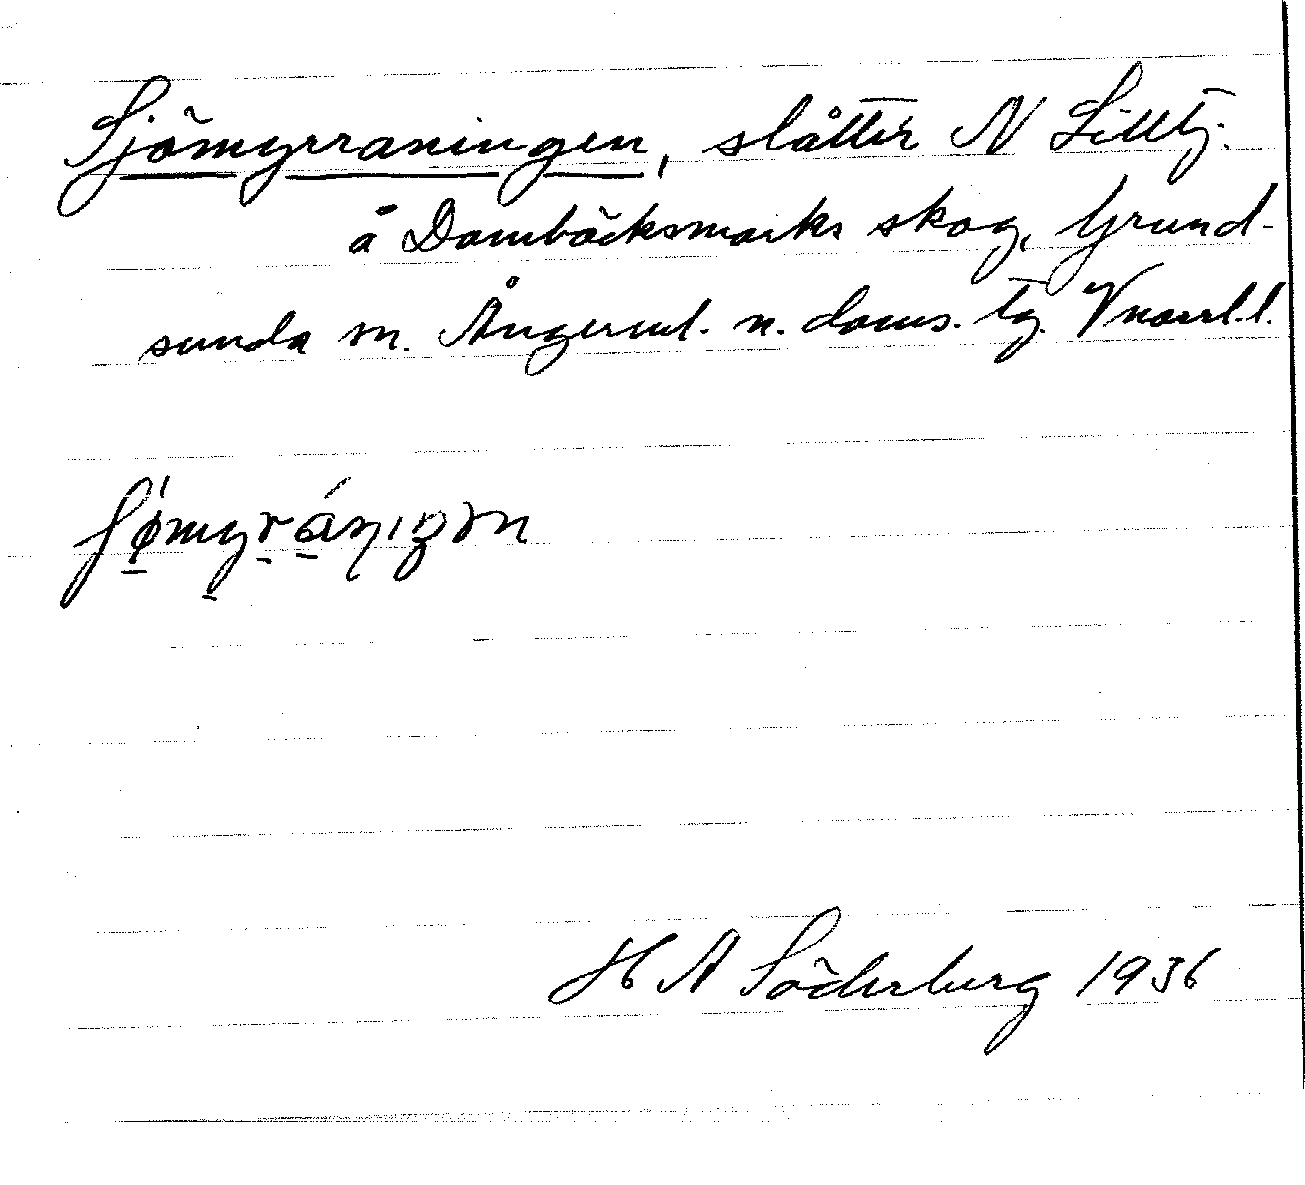 Sjömyrraningen, slåtter N Lilltj.
å Dombäcksmarks skog, Grund-
sunda sn. Ångerml. n. doms. tg. Vnorrl. l.
H A Söderberg 1936